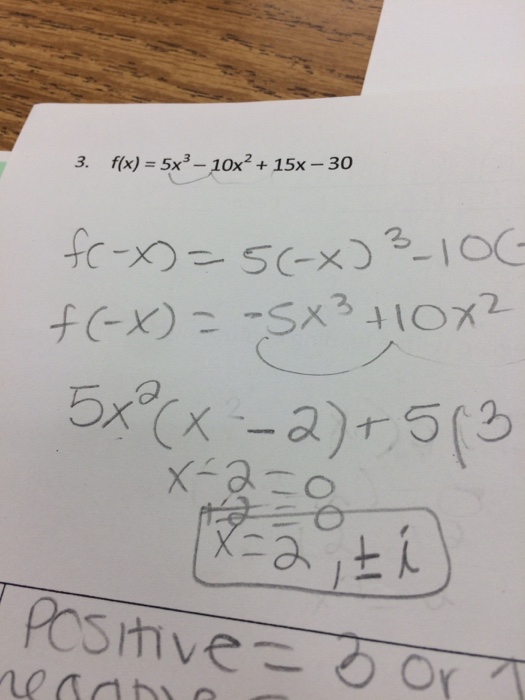 3. f(x) = 5x³ – 10x² + 15x – 30
f(-x) = 5(-x)³ -10(-
f(-x) = -5x³ +10x²
5x²(x - 2) + 5(3
x-2=0
+2=0
x=2, ± i
Positive = 3 or 1